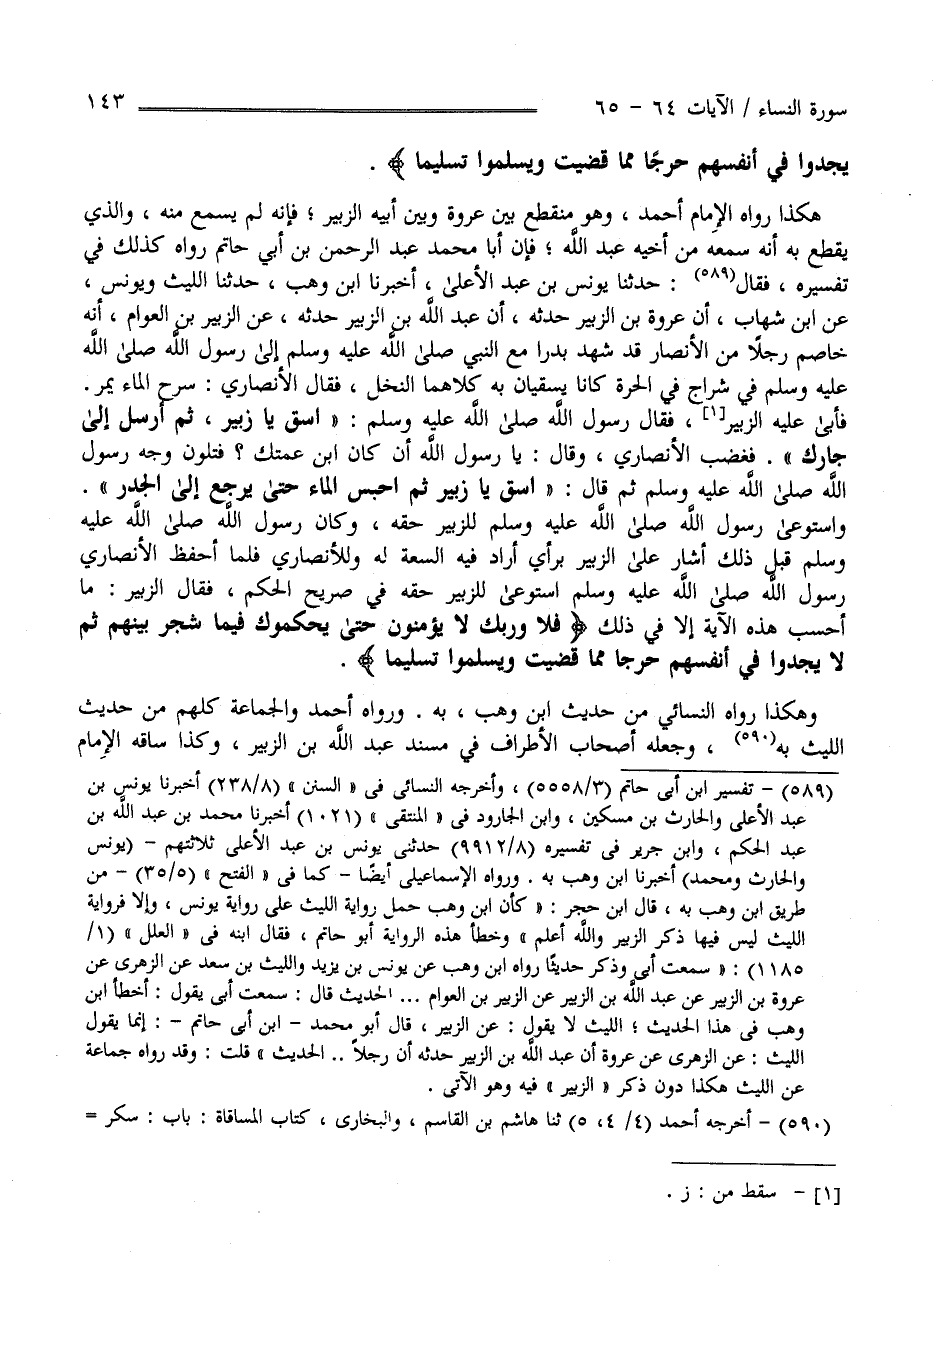 سورة النساء / الآيات ٦٤ - ٦٥ ١٤٣
يجدوا في أنفسهم حرجًا مما قضيت ويسلموا تسليما ﴾ .
هكذا رواه الإمام أحمد ، وهو منقطع بين عروة وبين أبيه الزبير ؛ فإنه لم يسمع منه ، والذي
يقطع به أنه سمعه من أخيه عبد اللَّه ؛ فإن أبا محمد عبد الرحمن بن أبي حاتم رواه كذلك في
تفسيره ، فقال(٥٨٩) : حدثنا يونس بن عبد الأعلىٰ ، أخبرنا ابن وهب ، حدثنا الليث ويونس ،
عن ابن شهاب ، أن عروة بن الزبير حدثه ، أن عبد اللَّه بن الزبير حدثه ، عن الزبير بن العوام ، أنه
خاصم رجلًا من الأنصار قد شهد بدرا مع النبي صلىٰ اللَّه عليه وسلم إلىٰ رسول اللَّه صلىٰ اللَّه
عليه وسلم في شراج في الحرة كانا يسقيان به كلاهما النخل ، فقال الأنصاري : سرح الماء يمر .
فأبىٰ عليه الزبير[١] ، فقال رسول اللَّه صلىٰ اللَّه عليه وسلم : « اسق يا زبير ، ثم أرسل إلىٰ
جارك » . فغضب الأنصاري ، وقال : يا رسول اللَّه أن كان ابن عمتك ؟ فتلون وجه رسول
اللَّه صلىٰ اللَّه عليه وسلم ثم قال : « اسق يا زبير ثم احبس الماء حتىٰ يرجع إلىٰ الجدر » .
واستوعىٰ رسول اللَّه صلىٰ اللَّه عليه وسلم للزبير حقه ، وكان رسول اللَّه صلىٰ اللَّه عليه
وسلم قبل ذلك أشار علىٰ الزبير برأي أراد فيه السعة له وللأنصاري فلما أحفظ الأنصاري
رسول اللَّه صلىٰ اللَّه عليه وسلم استوعىٰ للزبير حقه في صريح الحكم ، فقال الزبير : ما
أحسب هذه الآية إلا في ذلك ﴿ فلا وربك لا يؤمنون حتىٰ يحكموك فيما شجر بينهم ثم
لا يجدوا في أنفسهم حرجا مما قضيت ويسلموا تسليما ﴾ .
وهكذا رواه النسائي من حديث ابن وهب ، به . ورواه أحمد والجماعة كلهم من حديث
الليث به(٥٩٠) ، وجعله أصحاب الأطراف في مسند عبد اللَّه بن الزبير ، وكذا ساقه الإمام
(٥٨٩) - تفسير ابن أبى حاتم (٥٥٥٨/٣) ، وأخرجه النسائى فى « السنن » (٢٣٨/٨) أخبرنا يونس بن
عبد الأعلى والحارث بن مسكين ، وابن الجارود فى « المنتقى » (١٠٢١) أخبرنا محمد بن عبد الله بن
عبد الحكم ، وابن جرير فى تفسيره (٩٩١٢/٨) حدثنى يونس بن عبد الأعلى ثلاثتهم - (يونس
والحارث ومحمد) أخبرنا ابن وهب به . ورواه الإسماعيلى أيضًا - كما فى « الفتح » (٣٥/٥) - من
طريق ابن وهب به ، قال ابن حجر : « كأن ابن وهب حمل رواية الليث على رواية يونس ، وإلا فرواية
الليث ليس فيها ذكر الزبير واللَّه أعلم » وخطأ هذه الرواية أبو حاتم ، فقال ابنه فى « العلل » (١/
١١٨٥) : « سمعت أبى وذكر حديثًا رواه ابن وهب عن يونس بن يزيد والليث بن سعد عن الزهرى عن
عروة بن الزبير عن عبد اللَّه بن الزبير عن الزبير بن العوام ... الحديث قال : سمعت أبى يقول : أخطأ ابن
وهب فى هذا الحديث ؛ الليث لا يقول : عن الزبير ، قال أبو محمد - ابن أبى حاتم - : إنما يقول
الليث : عن الزهرى عن عروة أن عبد اللَّه بن الزبير حدثه أن رجلاً .. الحديث » قلت : وقد رواه جماعة
عن الليث هكذا دون ذكر « الزبير » فيه وهو الآتى .
(٥٩٠) - أخرجه أحمد (٤/ ٤، ٥) ثنا هاشم بن القاسم ، والبخارى ، كتاب المساقاة : باب : سكر =
[١] - سقط من : ز .